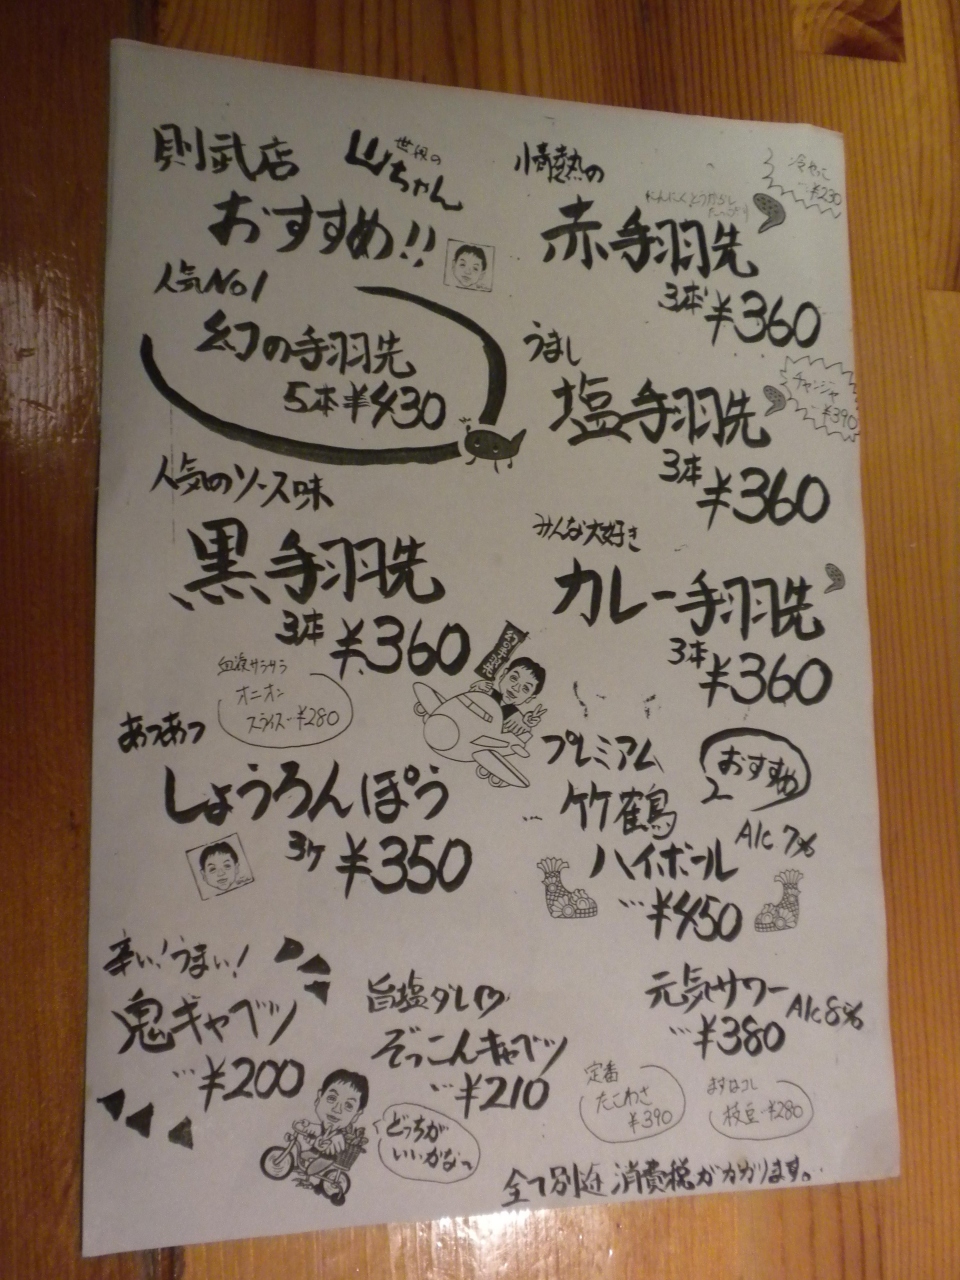 則武店
世界の
山ちゃん
おすすめ!!
人気No1
幻の手羽先
5本¥430
人気のソース味
黒手羽先
3本¥360
血液サラサラ
オニオン
スライス…¥280
あつあつ
しょうろんぽう
3ケ¥350
辛い!うまい!
鬼キャベツ
…¥200
旨塩ダレ♡
ぞっこんキャベツ
…¥210
どっちが
いいかな~
情熱の
にんにくとうがらし
たっぷり
赤手羽先
3本¥360
冷やっこ
…¥230
うまし
塩手羽先
3本¥360
チャンジャ
¥390
みんな大好き
カレー手羽先
3本¥360
幻の手羽先
プレミアム
おすすめ
竹鶴
ハイボール
Alc 7%
…¥450
元気サワー
Alc 8%
…¥380
定番
たこわさ
¥390
まずはコレ
枝豆…¥280
全て別途消費税がかかります。